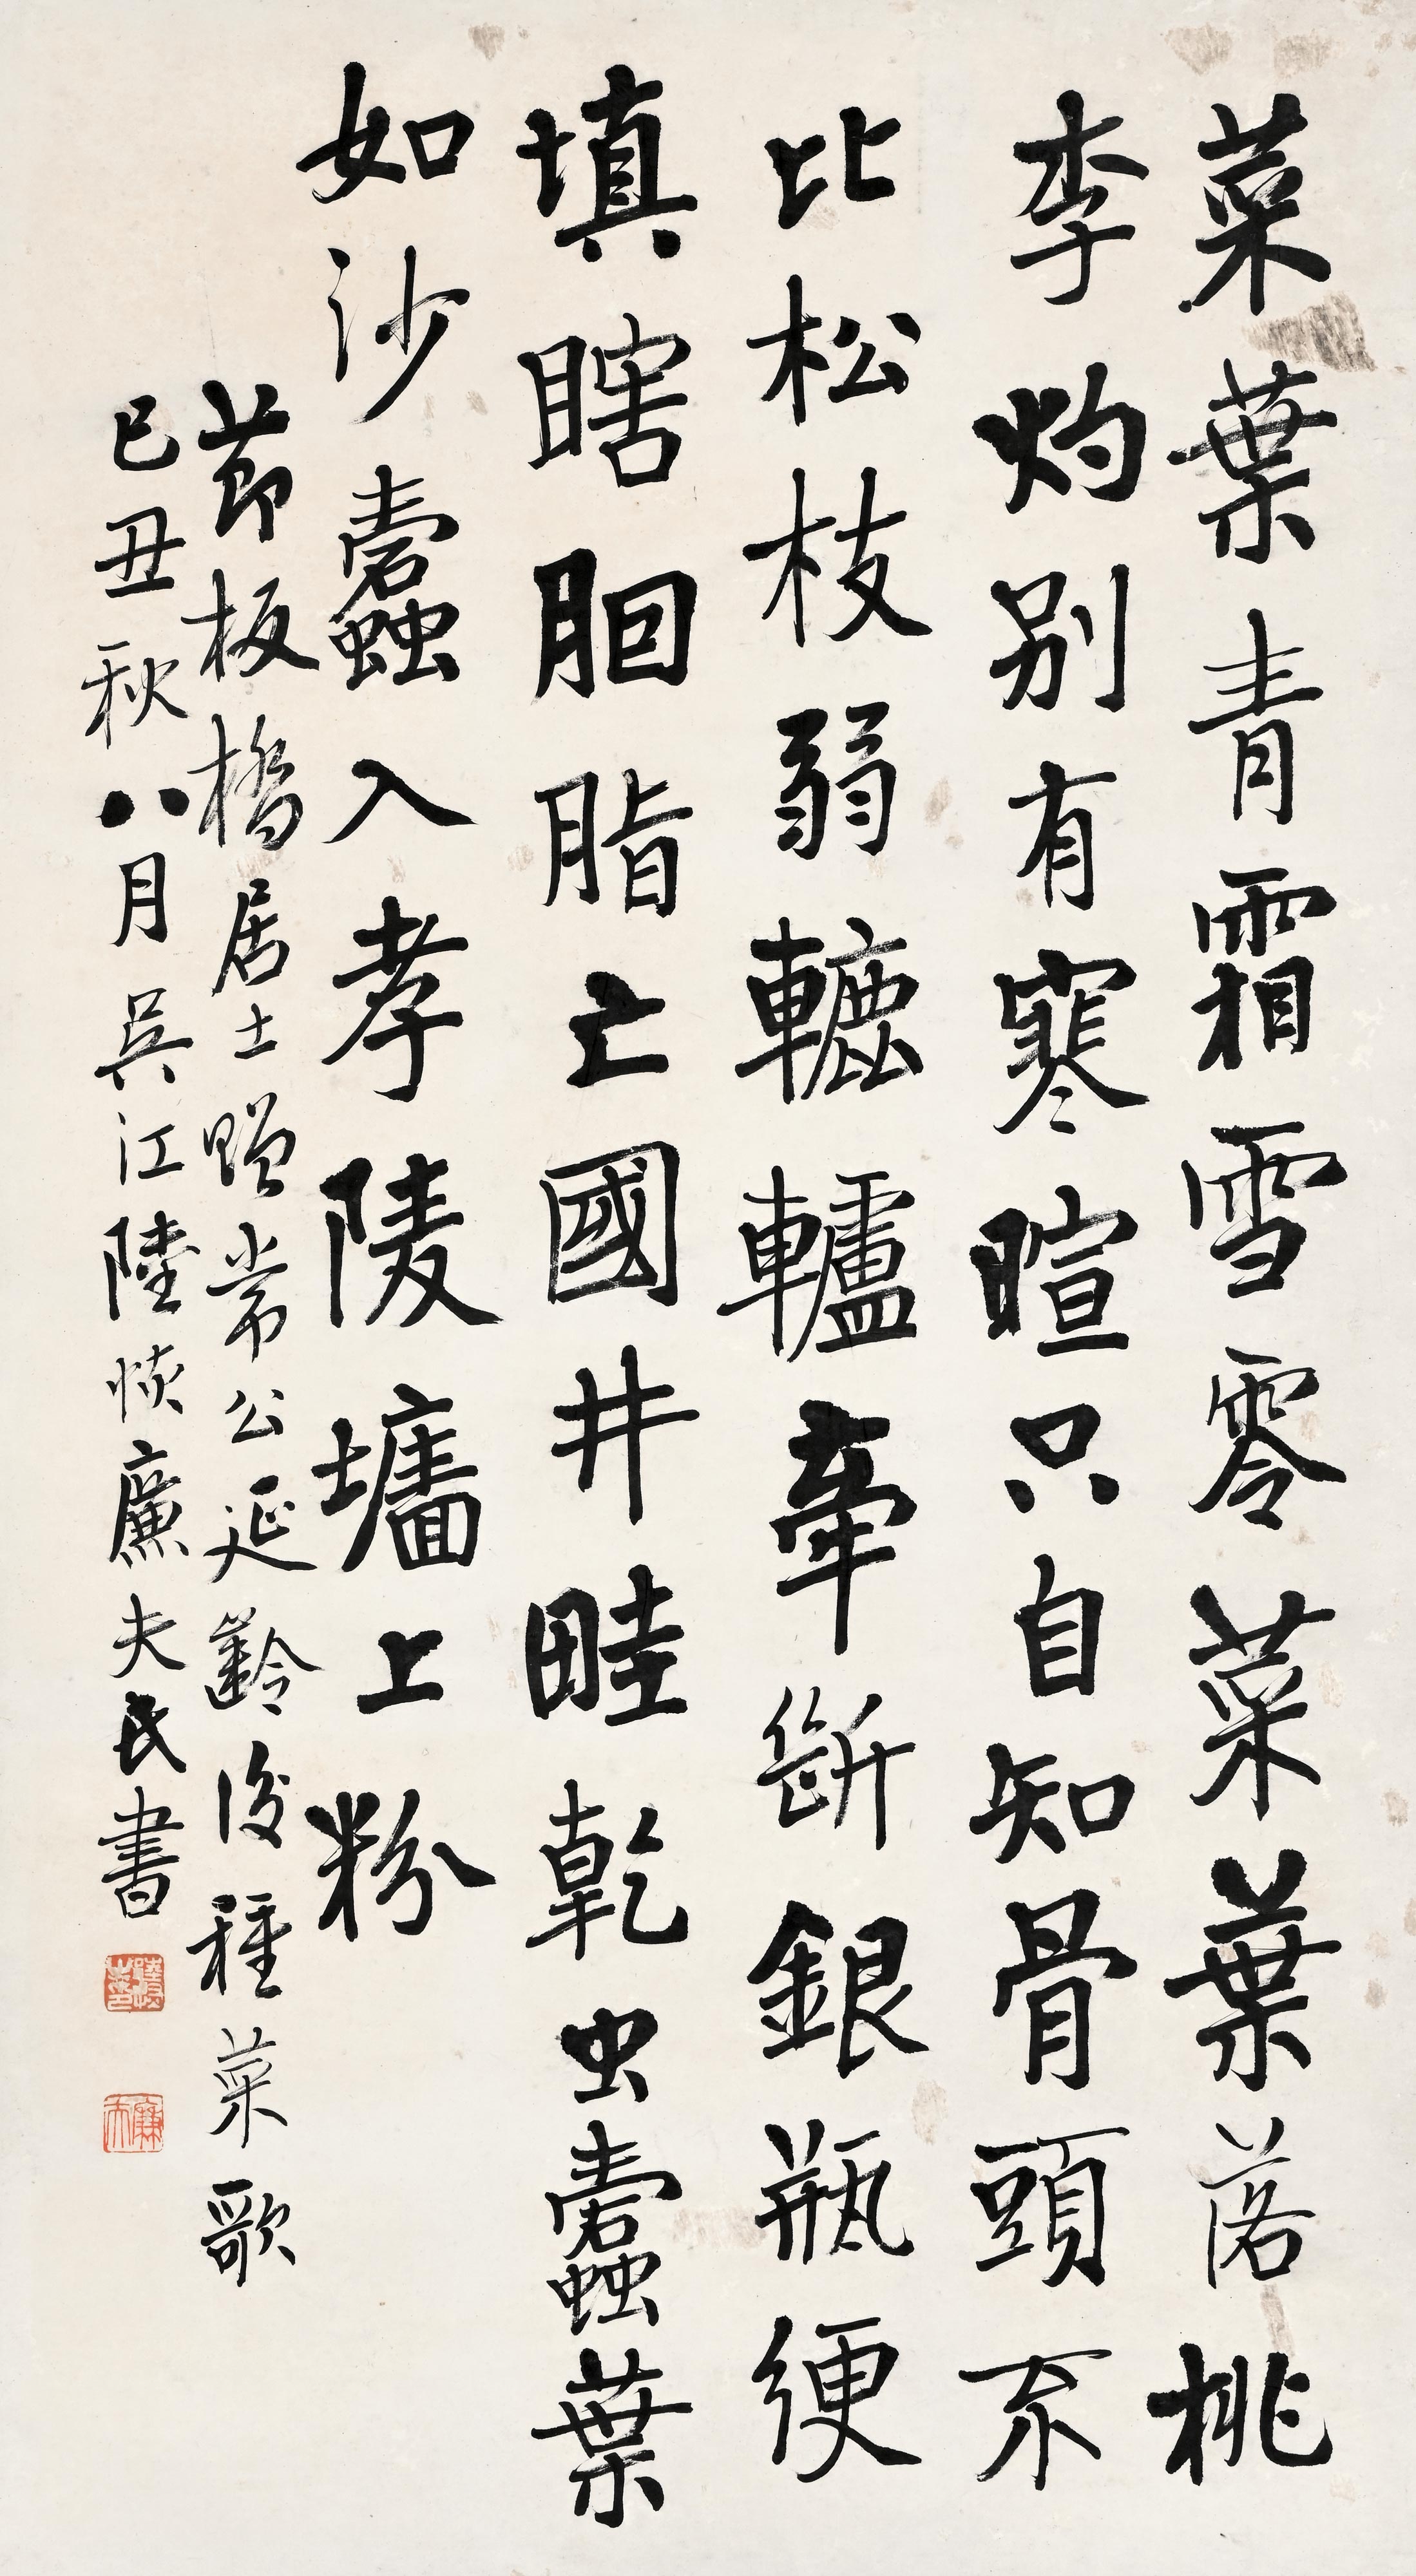 菜葉青霜雪零菜葉落桃
李灼別有寒暄只自知骨頭不
比松枝弱轆轤牽斷銀瓶綆
填瞎胭脂亡國井畦乾虫蠹葉
如沙蠹入孝陵墻上粉
節板橋居士贈常公延齡後種菜歌
己丑秋八月吳江陸恢廉夫氏書
廉夫